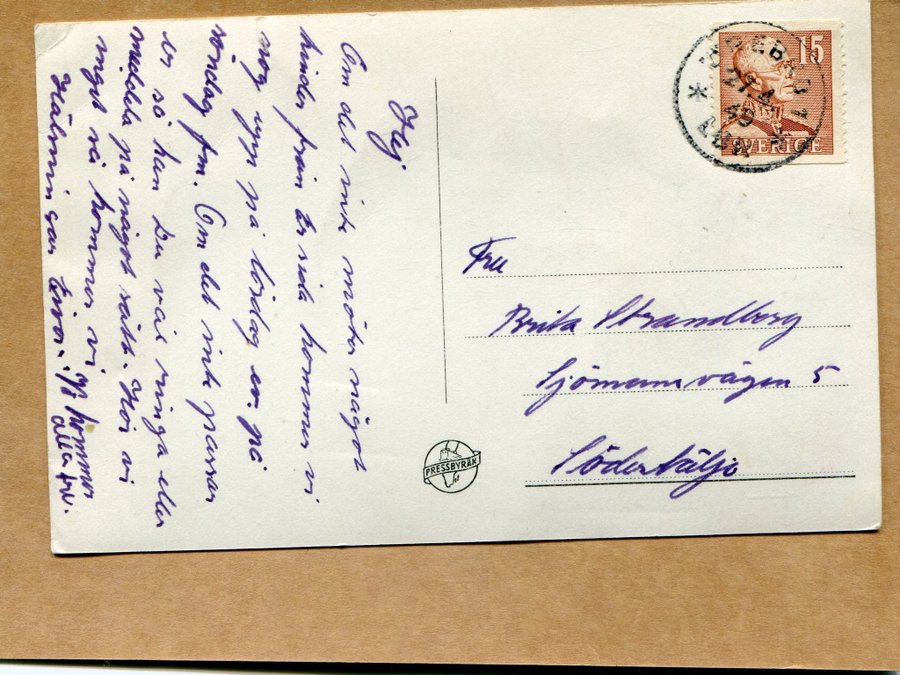 Hej
Om det inte möter något
hinder från Er sida kommer vi
nog upp på lördag em på
söndag fm. Om det inte passar
er så kan Du väl ringa eller
meddela på något sätt. Hör vi
inget så kommer vi
Hälsningar
Vi kommer
alla tre.
15
SVERIGE
Fru
Brita Strandberg
Sjömansvägen 5
Södertälje
PRESSBYRÅN